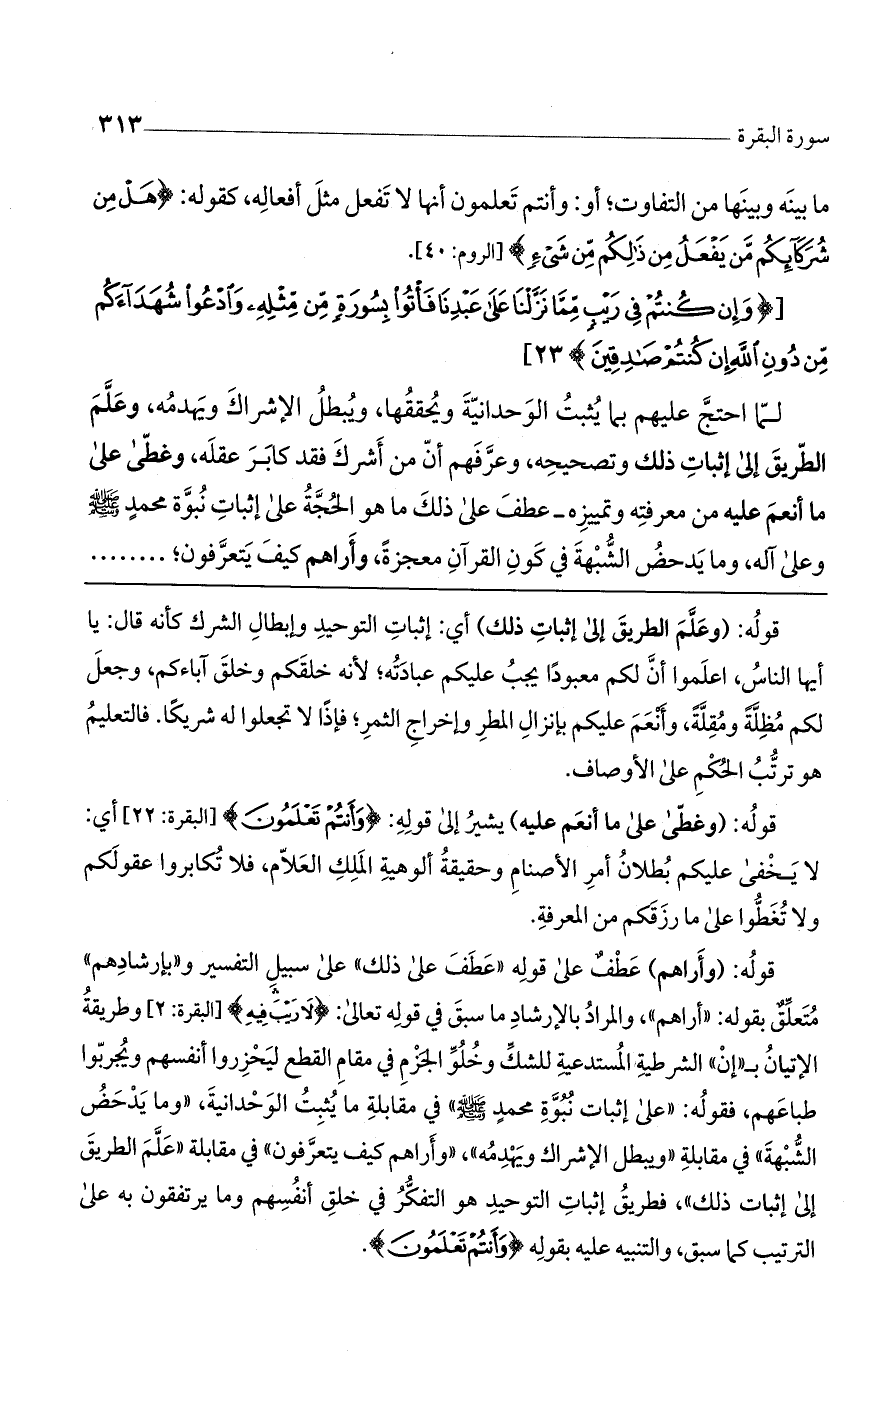 سورة البقرة ٣١٣
ما بينَه وبينَها من التفاوت؛ أو: وأنتم تَعلمون أنها لا تَفعل مثلَ أفعالِه، كقوله: ﴿هَلْ مِن
شُرَكَآئِكُم مَّن يَفْعَلُ مِن ذَٰلِكُم مِّن شَىْءٍ﴾ [الروم: ٤٠].
[﴿وَإِن كُنتُمْ فِى رَيْبٍ مِّمَّا نَزَّلْنَا عَلَىٰ عَبْدِنَا فَأْتُوا۟ بِسُورَةٍ مِّن مِّثْلِهِۦ وَٱدْعُوا۟ شُهَدَآءَكُم
مِّن دُونِ ٱللَّهِ إِن كُنتُمْ صَٰدِقِينَ﴾ ٢٣]
لـمّا احتجَّ عليهم بما يُثبتُ الوَحدانيّةَ ويُحققُها، ويُبطلُ الإشراكَ ويَهدمُه، وعلَّمَ
الطّريقَ إلىٰ إثباتِ ذلك وتصحيحِه، وعرَّفَهم أنّ من أَشركَ فقد كابَـرَ عقلَه، وغطّىٰ علىٰ
ما أنعمَ عليه من معرفتِه وتمييزِه ـ عطفَ علىٰ ذلكَ ما هو الحُجَّةُ علىٰ إثباتِ نُبوَّة محمدٍ ﷺ
وعلىٰ آله، وما يَدحضُ الشُّبْهةَ في كَونِ القرآنِ معجزةً، وأَراهم كيفَ يَتعرَّفون؛ ........
قولُه: (وعَلَّمَ الطريقَ إلىٰ إثباتِ ذلك) أي: إثباتِ التوحيدِ وإبطالِ الشرك كأنه قال: يا
أيها الناسُ، اعلَموا أنَّ لكم معبودًا يجبُ عليكم عبادَتُه؛ لأنه خلقَكم وخلقَ آباءكم، وجعلَ
لكم مُظِلَّةً ومُقِلَّةً، وأَنْعَمَ عليكم بإنزالِ المطرِ وإخراجِ الثمرِ؛ فإذًا لا تجعلوا له شريكًا. فالتعليمُ
هو ترتُّبُ الحُكْمِ علىٰ الأوصاف.
قولُه: (وغطّىٰ علىٰ ما أنعَم عليه) يشيرُ إلىٰ قولِهِ: ﴿وَأَنتُمْ تَعْلَمُونَ﴾ [البقرة: ٢٢] أي:
لا يَـخْفىٰ عليكم بُطلانُ أمرِ الأصنامِ وحقيقةُ ألوهيةِ المَلِكِ العَلاّم، فلا تُكابروا عقولَكم
ولا تُغَطُّوا علىٰ ما رزَقَكم من المعرفةِ.
قولُه: (وأَراهم) عَطْفٌ علىٰ قولِه «عَطَفَ علىٰ ذلك» علىٰ سبيلِ التفسير و«بإرشادِهم»
مُتَعلِّقٌ بقوله: «أراهم»، والمرادُ بالإرشادِ ما سبقَ في قولِه تعالىٰ: ﴿لَا رَيْبَ ۛ فِيهِ﴾ [البقرة: ٢] وطريقةُ
الإتيانُ بـ«إنْ» الشرطيةِ المُستدعيةِ للشكِّ وخُلُوِّ الجَزْمِ في مقامِ القطع ليَحْزِروا أنفسهم ويُجربّوا
طباعَهم، فقولُه: «علىٰ إثبات نُبُوَّةِ محمدٍ ﷺ» في مقابلةِ ما يُثبِتُ الوَحْدانيةَ، «وما يَدْحَضُ
الشُّبْهةَ» في مقابلةِ «ويبطل الإشراك ويَهْدِمُه»، «وأَراهم كيف يتعرَّفون» في مقابلة «عَلَّمَ الطريقَ
إلىٰ إثبات ذلك»، فطريقُ إثباتِ التوحيدِ هو التفكُّرُ في خلقِ أنفُسِهم وما يرتفقون به علىٰ
الترتيب كما سبق، والتنبيه عليه بقولِه ﴿وَأَنتُمْ تَعْلَمُونَ﴾.